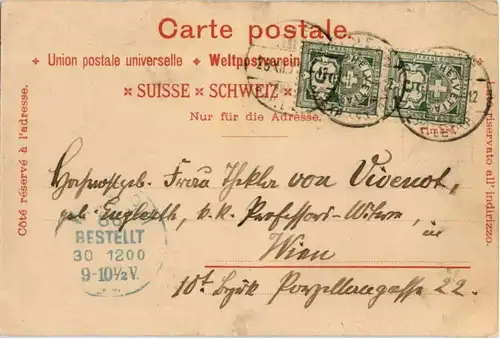 Carte postale.
Union postale universelle + Weltpostverein
SUISSE × SCHWEIZ ×
Nur für die Adresse.
Côté réservé à l'adresse.
riservato all'indirizzo.
HELVETIA
HELVETIA
Hochwohlgeb. Frau Thekla von Vivenot,
geb. k. k. Professors-Witwe,
in
Wien
10t. Bezirk Porzellangasse 22.
BESTELLT
30 12 00
9-10½V.